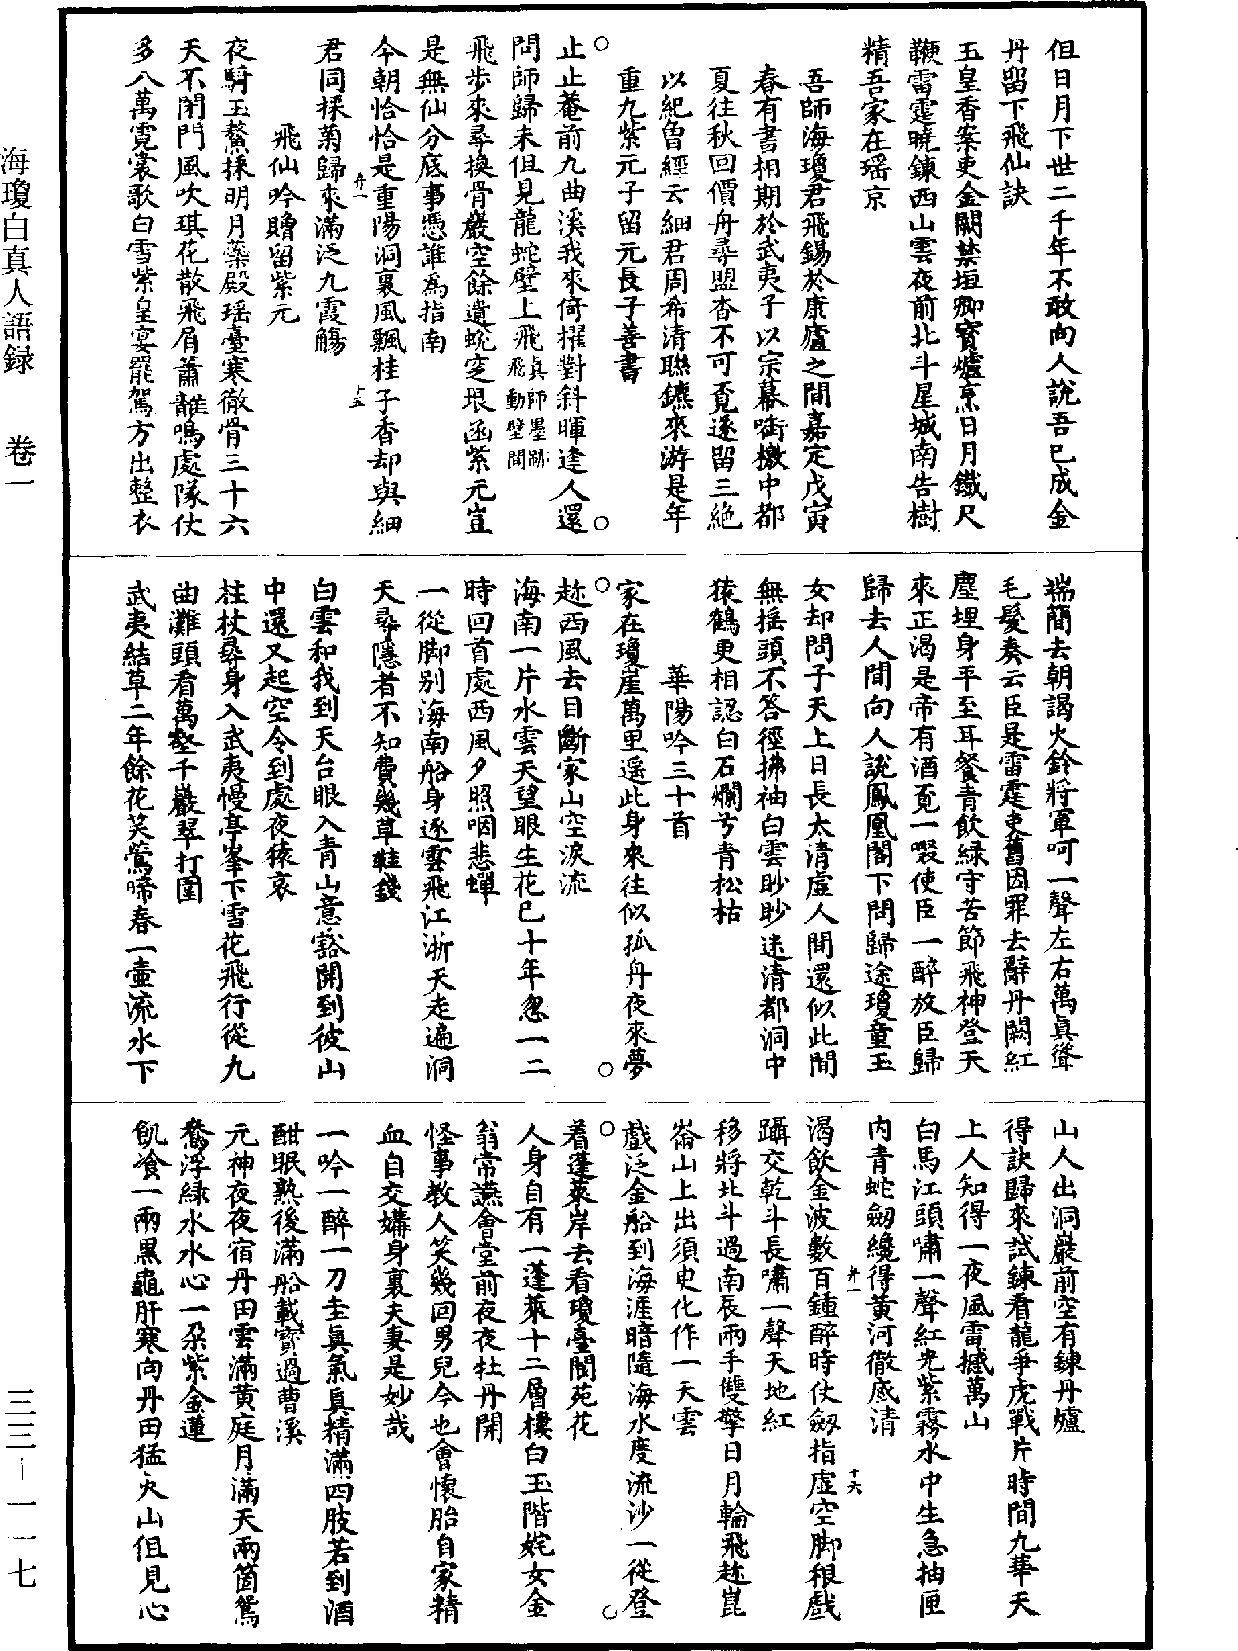 但日月下世二千年不敢向人說吾已成金
丹留下飛仙訣
玉皇香案吏金闕禁垣卿寶爐烹日月鐵尺
鞭雷霆曉鍊西山雲夜前北斗星城南告樹
精吾家在瑶京
吾師海瓊君飛錫於康廬之間嘉定戊寅
春有書相期於武夷子以宗幕啣檄中都
夏往秋回價舟尋盟杳不可覔遂留三絶
以紀魯經云細君周希清聮鑣來游是年
重九紫元子留元長子善書
止止菴前九曲溪我來倚櫂對斜暉逢人還
問師歸未但見龍蛇壁上飛真師墨跡飛動壁間
飛步來尋換骨巖空餘遺蛻窆垠函紫元豈
是無仙分底事憑誰為指南
今朝恰恰是重陽洞裏風飄桂子香却與細
君同採菊歸來滿泛九霞觴
弁一
十五
飛仙吟贈留紫元
夜騎玉鰲採明月蘂殿瑶臺寒徹骨三十六
天不閉門風吹琪花散飛屑蕭韶鳴處隊仗
多八萬霓裳歌白雪紫皇宴罷駕方出整衣
端簡去朝謁火鈴將軍呵一聲左右萬真聳
毛髮奏云臣是雷霆吏舊因罪去辭丹闕紅
塵埋身平至耳餐青飲緑守苦節飛神登天
來正渴是帝有酒覔一啜使臣一醉放臣歸
歸去人間向人說鳳凰閣下問歸途瓊童玉
女却問子天上日長太清虛人間還似此間
無摇頭不答徑拂袖白雲眇眇迷清都洞中
猿鶴更相認白石爛兮青松枯
華陽吟三十首
家在瓊崖萬里遥此身來往似孤舟夜來夢
趂西風去目斷家山空淚流
海南一片水雲天望眼生花已十年忽一二
時回首處西風夕照咽悲蟬
一從脚别海南船身逐雲飛江浙天走遍洞
天尋隱者不知費幾草鞋錢
白雲和我到天台眼入青山意豁開到彼山
中還又起空令到處夜猿哀
拄杖尋身入武夷慢亭峯下雪花飛行從九
曲灘頭看萬壑千巖翠打圍
武夷結草二年餘花笑鶯啼春一壷流水下
山人出洞巖前空有鍊丹爐
得訣歸來試鍊看龍爭虎戰片時間九華天
上人知得一夜風雷撼萬山
白馬江頭嘯一聲紅光紫霧水中生急抽匣
内青蛇劒纔得黄河徹底清
弁一
十六
渴飲金波數百鍾醉時仗劒指虛空脚根戲
躡交乾斗長嘯一聲天地紅
移將北斗過南辰兩手雙擎日月輪飛趂崑
崙山上出須臾化作一天雲
戲泛金船到海涯暗隨海水度流沙一從登
着蓬萊岸去看瓊臺閬苑花
人身自有一蓬萊十二層樓白玉階姹女金
翁常讌會堂前夜夜牡丹開
怪事教人笑幾回男兒今也會懷胎自家精
血自交媾身裏夫妻是妙哉
一吟一醉一刀圭真氣真精滿四肢若到酒
酣眠熟後滿船載寳過曹溪
元神夜夜宿丹田雲滿黄庭月滿天兩箇鴛
鴦浮緑水水心一朶紫金蓮
飢飡一兩黑龜肝寒向丹田猛火山但見心
海瓊白真人語録　卷一
三三－一一七